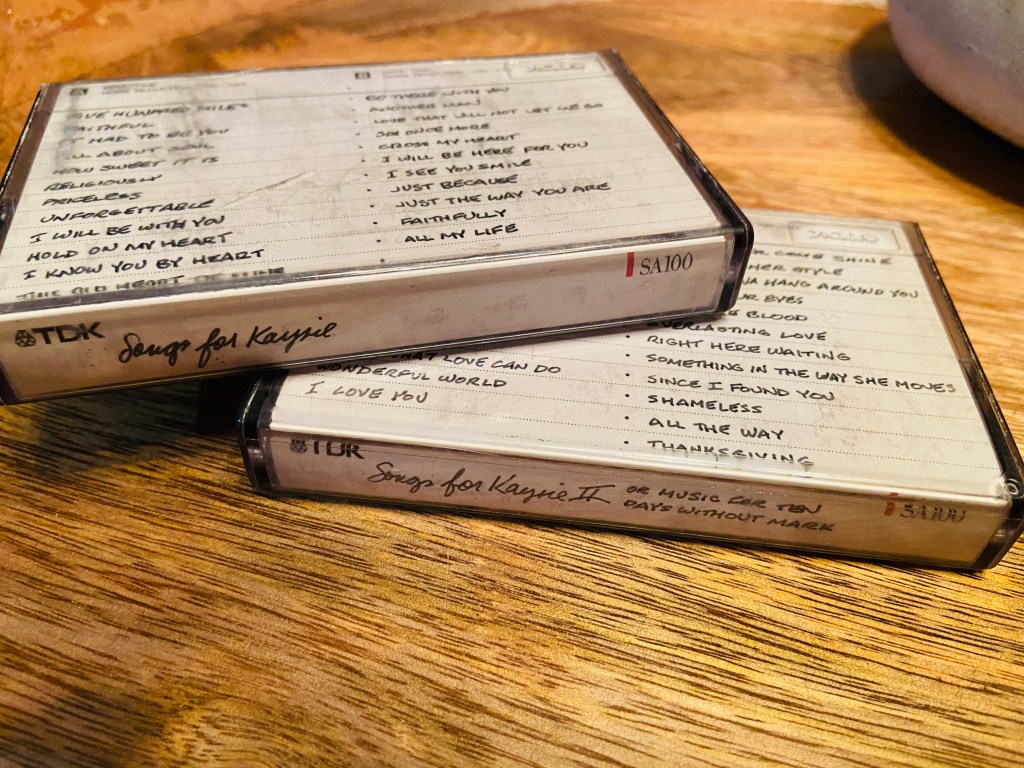 A
B
GO THERE WITH YOU
HUNDRED MILES
ANOTHER MAN
FAITHFUL
LOVE THAT WILL NOT LET ME GO
HAD TO BE YOU
ONCE MORE
ALL ABOUT SOUL
CROSS MY HEART
HOW SWEET IT IS
I WILL BE HERE FOR YOU
RELIGIOUSLY
I SEE YOU SMILE
PRICELESS
JUST BECAUSE
UNFORGETTABLE
JUST THE WAY YOU ARE
I WILL BE WITH YOU
FAITHFULLY
HOLD ON MY HEART
ALL MY LIFE
I KNOW YOU BY HEART
OLD HEART OF MINE
TDK Songs for Kaysie SA100
COME SHINE
STYLE
HANG AROUND YOU
EYES
BLOOD
EVERLASTING LOVE
RIGHT HERE WAITING
SOMETHING IN THE WAY SHE MOVES
SINCE I FOUND YOU
SHAMELESS
ALL THE WAY
THANKSGIVING
WHAT LOVE CAN DO
WONDERFUL WORLD
I LOVE YOU
TDK Songs for Kaysie II OR MUSIC FOR TEN
DAYS WITHOUT MARK
SA100